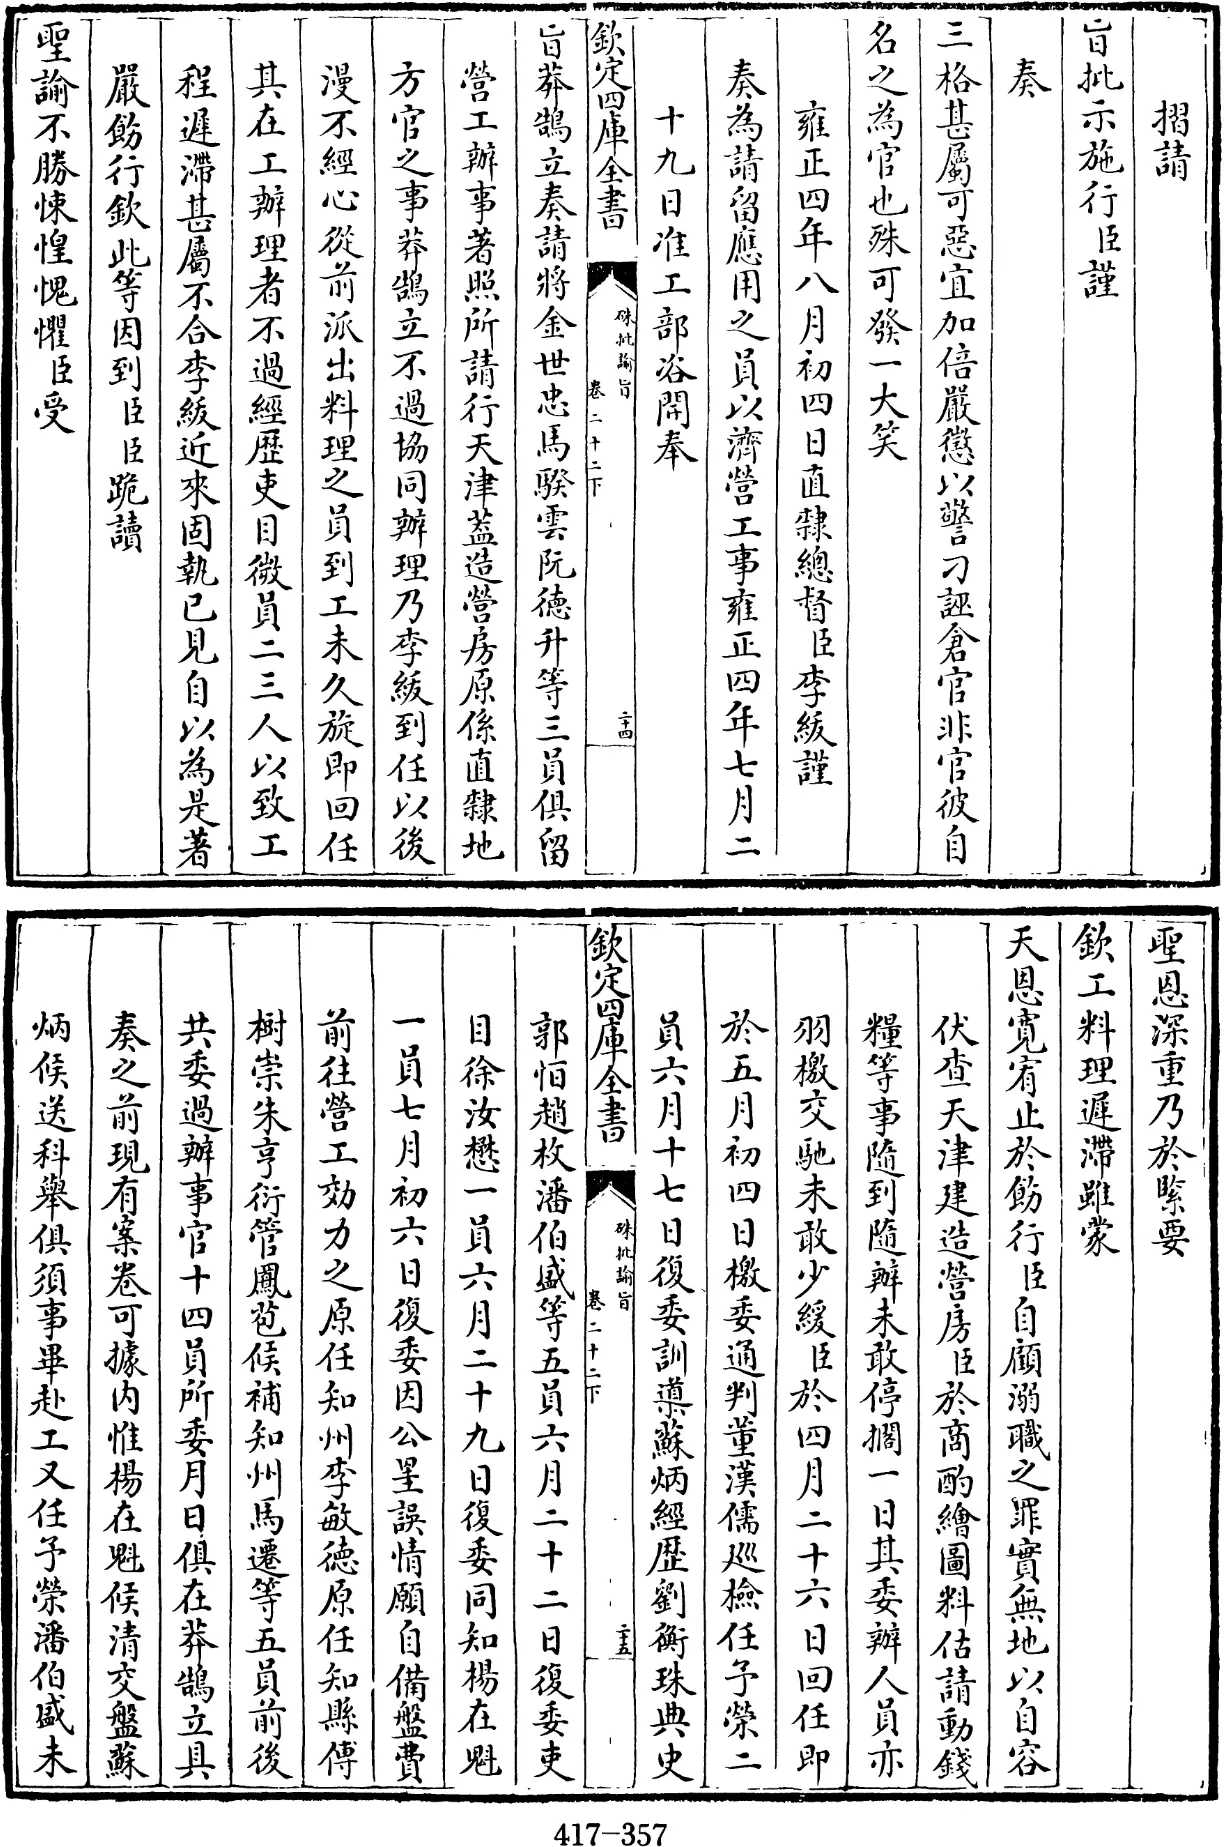 摺請
旨批示施行臣謹
奏
三格甚屬可惡宜加倍嚴懲以警刁誣倉官非官彼自
名之為官也殊可發一大笑
雍正四年八月初四日直隸總督臣李紱謹
奏為請留應用之員以濟營工事雍正四年七月二
十九日准工部咨開奉
欽定四庫全書
硃批諭旨
卷二十二下
二十四
旨莽鵠立奏請將金世忠馬騤雲阮德升等三員俱留
營工辦事著照所請行天津葢造營房原係直隸地
方官之事莽鵠立不過協同辦理乃李紱到任以後
漫不經心從前派出料理之員到工未久旋即回任
其在工辦理者不過經歷吏目微員二三人以致工
程遲滯甚屬不合李紱近來固執已見自以為是著
嚴飭行欽此等因到臣臣跪讀
聖諭不勝悚惶愧懼臣受
聖恩深重乃於緊要
欽工料理遲滯雖蒙
天恩寛宥止於飭行臣自顧溺職之罪實無地以自容
伏查天津建造營房臣於商酌繪圖料估請動錢
糧等事隨到隨辦未敢停擱一日其委辦人員亦
羽檄交馳未敢少緩臣於四月二十六日回任即
於五月初四日檄委通判董漢儒廵檢任予榮二
員六月十七日復委訓導蘇炳經歷劉衡珠典史
欽定四庫全書
硃批諭旨
卷二十二下
二十五
郭恒趙枚潘伯盛等五員六月二十二日復委吏
目徐汝懋一員六月二十九日復委同知楊在魁
一員七月初六日復委因公罣誤情願自備盤費
前往營工効力之原任知州李敏德原任知縣傅
樹崇朱亨衍管鳳苞候補知州馬遷等五員前後
共委過辦事官十四員所委月日俱在莽鵠立具
奏之前現有案卷可據内惟楊在魁候清交盤蘇
炳候送科舉俱須事畢赴工又任予榮潘伯盛未
417-357